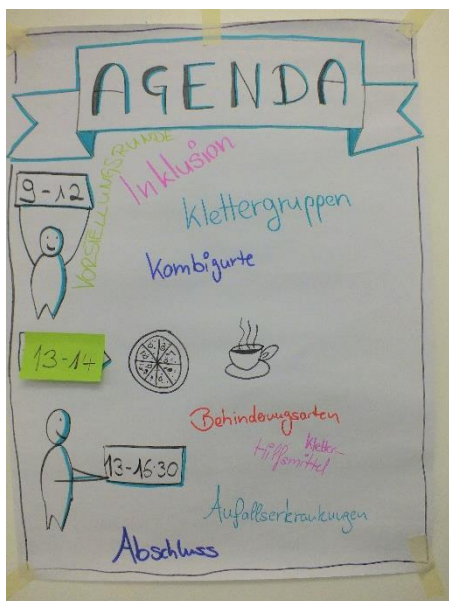 AGENDA
9-12
VORSTELLUNGSRUNDE
Inklusion
Klettergruppen
Kombigurte
13-14
Behinderungsarten
Kletter-
Hilfsmittel
13-16:30
Aufallserkrankungen
Abschluss